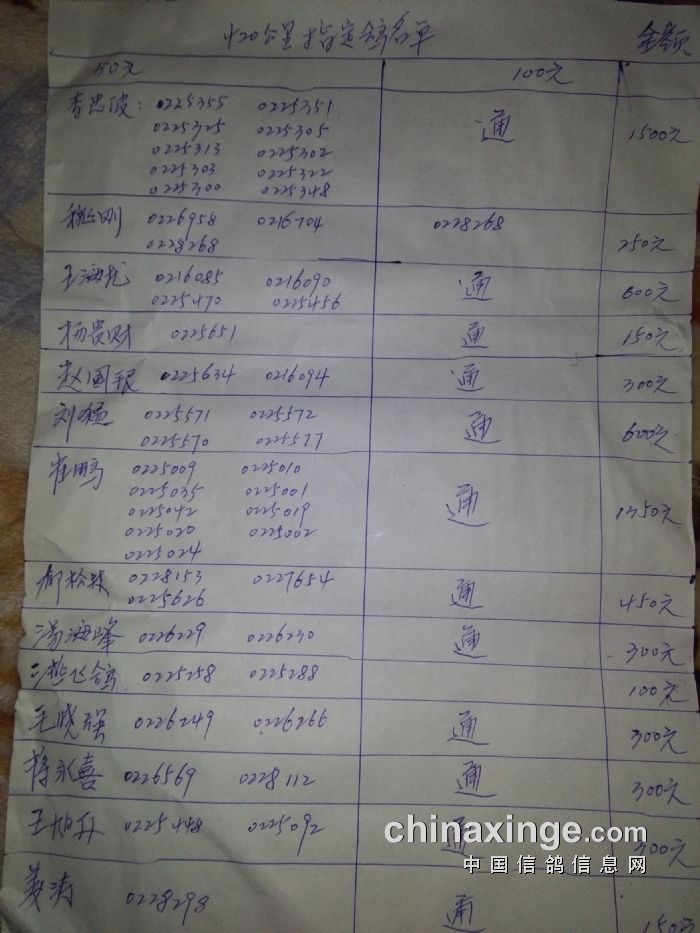 420公里指定鸽名单 金额
50元 100元
李忠波: 0225355 0225351 通 1500元
0225325 0225305
0225313 0225302
0225303 0225322
0225300 0225348
刚 0226958 0216704 0228268 250元
0228268
王海龙 0216085 0216090 通 600元
0225470 0225456
杨贵财 0225651 通 150元
赵国银 0225634 0216094 通 300元
刘猛 0225571 0225572 通 600元
0225570 0225577
崔鹏 0225009 0225010 通 1350元
0225035 0225001
0225042 0225019
0225020 0225002
0225024
郝松林 0228153 0227654 通 450元
0225626
汤海峰 0226229 0226230 通 300元
0225258 0225288 100元
王晓强 0226249 0226266 通 300元
蒋永喜 0226569 0228112 通 300元
王旭升 0225448 0225092 通 300元
chinaxinge.com
中国信鸽信息网
姜涛 0228298 通 150元